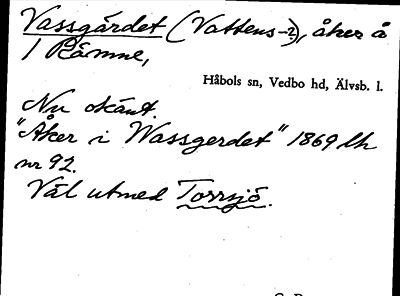 Vassgärdet (Vattens-?), åker å
1 Rämne,
Håbols sn, Vedbo hd, Älvsb. l.
Nu okänt.
"Åker i Wassgerdet" 1869 lh
nr 92.
Väl utmed Torrsjö.